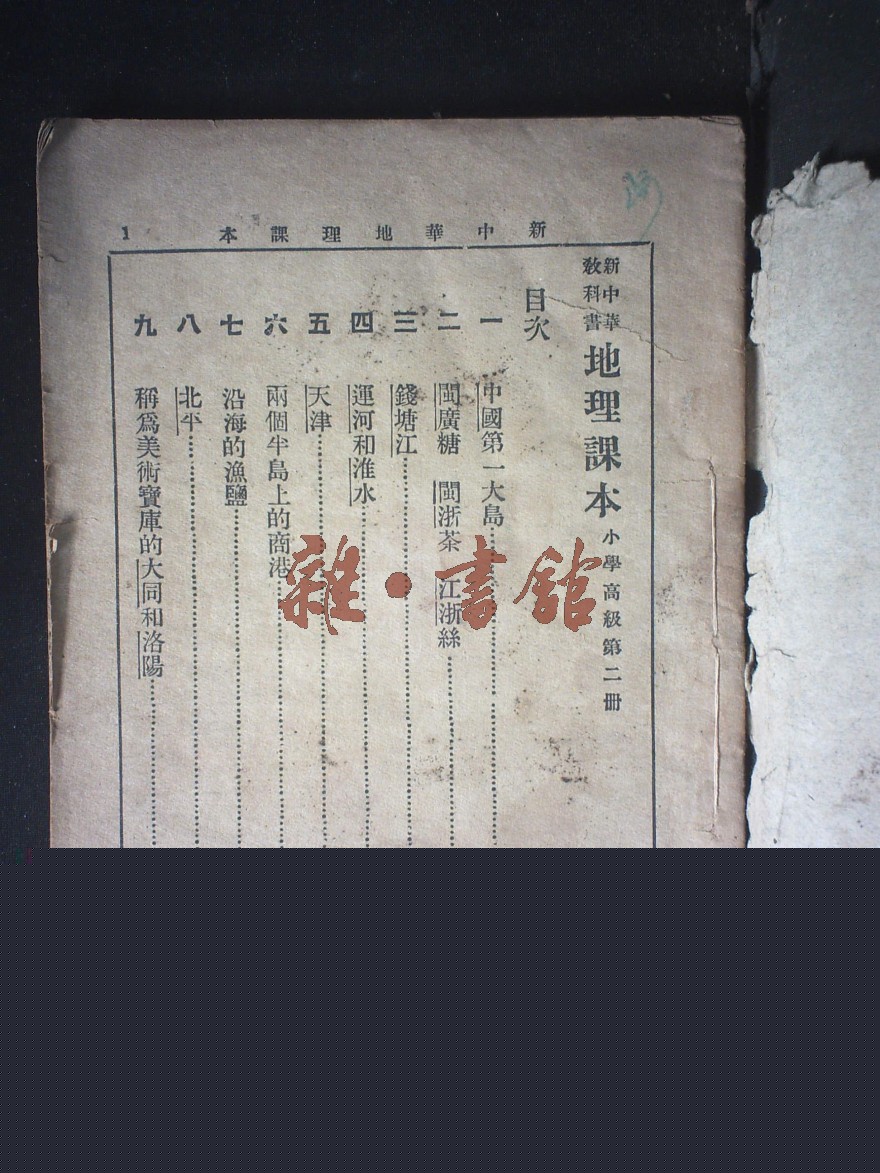 新中華地理課本 1
新中華教科書 地理課本 小學高級第二冊
目次
一 中國第一大島
二 閩廣糖 閩浙茶 江浙絲
三 錢塘江
四 運河和淮水
五 天津
六 兩個半島上的商港
七 沿海的漁鹽
八 北平
九 稱爲美術寶庫的大同和洛陽
雜·書館